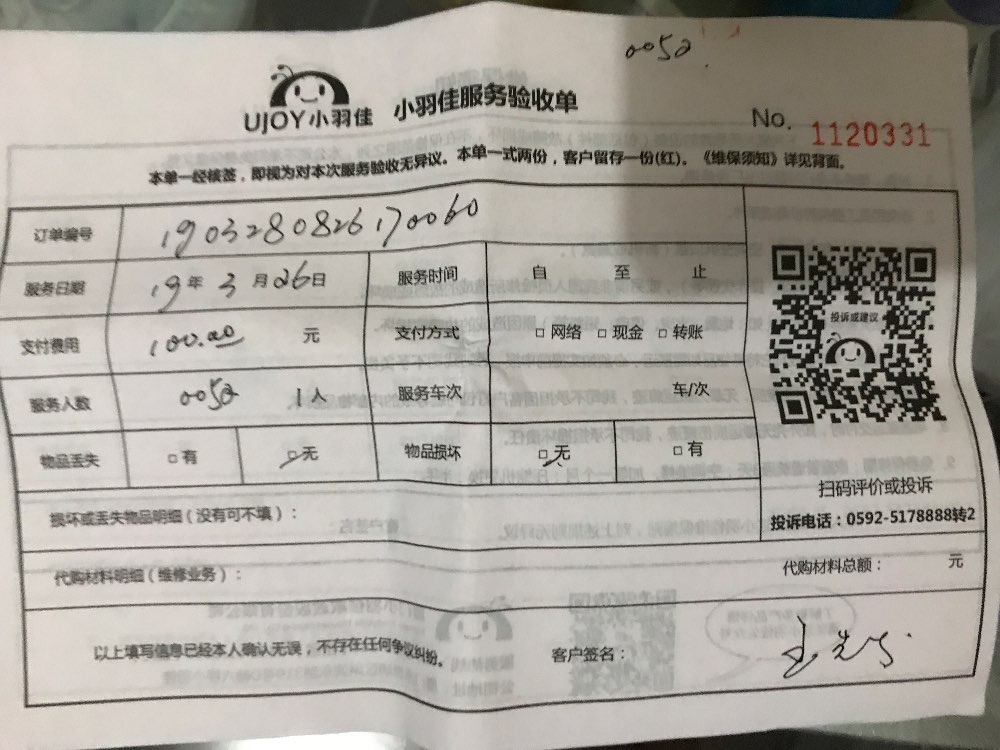 0052
UJOY小羽佳 小羽佳服务验收单
No. 1120331
本单一经核签，即视为对本次服务验收无异议。本单一式两份，客户留存一份(红)。《维保须知》详见背面。
订单编号 190328082617 0060
服务日期 19 年 3 月 26 日 服务时间 自 至 止
投诉或建议
支付费用 100.00 元 支付方式 □ 网络 □ 现金 □ 转账
服务人数 0052 1 人 服务车次 车/次
物品丢失 □ 有 □ 无 物品损坏 □ 无 □ 有
扫码评价或投诉
损坏或丢失物品明细（没有可不填）：
投诉电话：0592-5178888转2
代购材料明细（维修业务）： 代购材料总额： 元
以上填写信息已经本人确认无误，不存在任何争议纠纷。 客户签名：